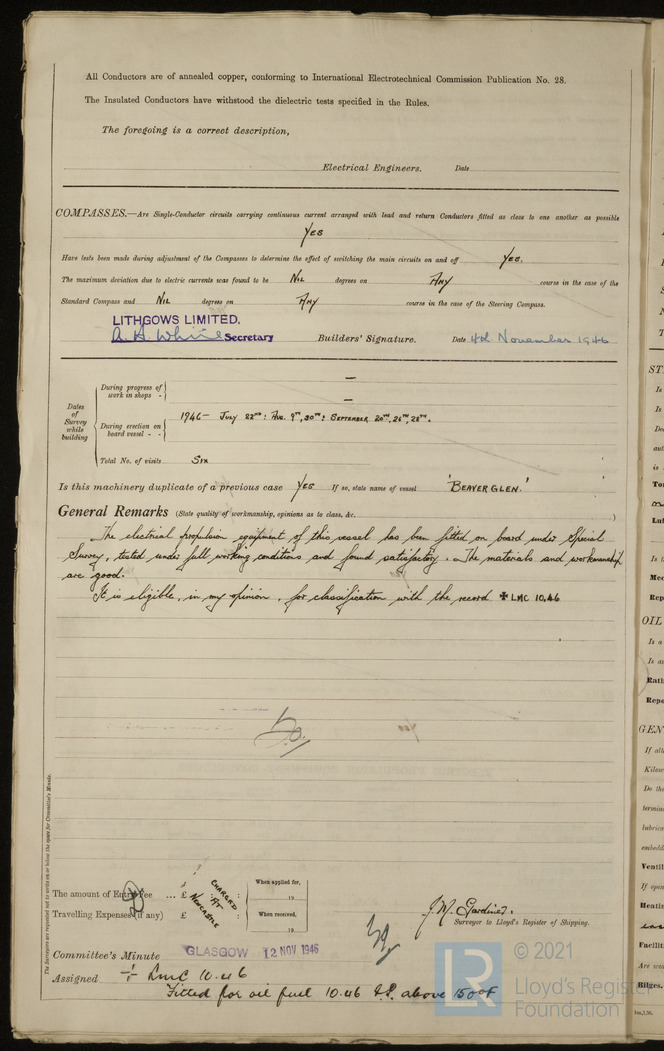 All Conductors are of annealed copper, conforming to International Electrotechnical Commission Publication No. 28.
The Insulated Conductors have withstood the dielectric tests specified in the Rules.
The foregoing is a correct description,
Electrical Engineers. Date
COMPASSES.—Are Single-Conductor circuits carrying continuous current arranged with lead and return Conductors fitted as close to one another as possible
YES
Have tests been made during adjustment of the Compasses to determine the effect of switching the main circuits on and off YES.
The maximum deviation due to electric currents was found to be NIL degrees on ANY course in the case of the
Standard Compass and NIL degrees on ANY course in the case of the Steering Compass.
LITHGOWS LIMITED.
A. H. White Secretary Builders' Signature. Date 4th November 1946
Dates of Survey while building
During progress of work in shops - —
During erection on board vessel - - — 1946 - JULY 22ND: AUG. 9TH, 30TH: SEPTEMBER 20TH, 26TH, 28TH.
Total No. of visits SIX
Is this machinery duplicate of a previous case YES If so, state name of vessel 'BEAVERGLEN.'
General Remarks (State quality of workmanship, opinions as to class, &c. )
The electrical propulsion equipment of this vessel has been fitted on board under Special
Survey, tested under full working conditions and found satisfactory. The materials and workmanship
are good.
It is eligible, in my opinion, for classification with the record ✠ LMC 10,46
The Surveyors are requested not to write on or below the space for Committee's Minute.
The amount of Entry Fee ... £ : : When applied for,
CHARGED AT NEWCASTLE
19
Travelling Expenses (if any) £ : : When received,
19
J. M. Gardner.
Surveyor to Lloyd's Register of Shipping.
Committee's Minute GLASGOW 12 NOV 1946
Assigned + LMC 10.46
Fitted for oil fuel 10.46 F.P. above 150°F
© 2021
LR Lloyd's Register
Foundation